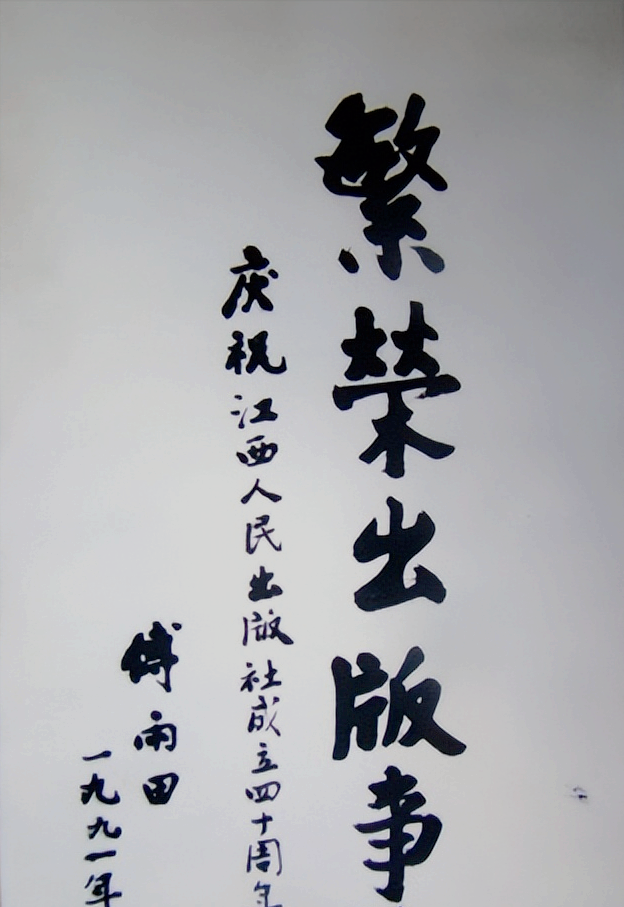 繁榮出版事
庆祝江西人民出版社成立四十周年
傅雨田
一九九一年